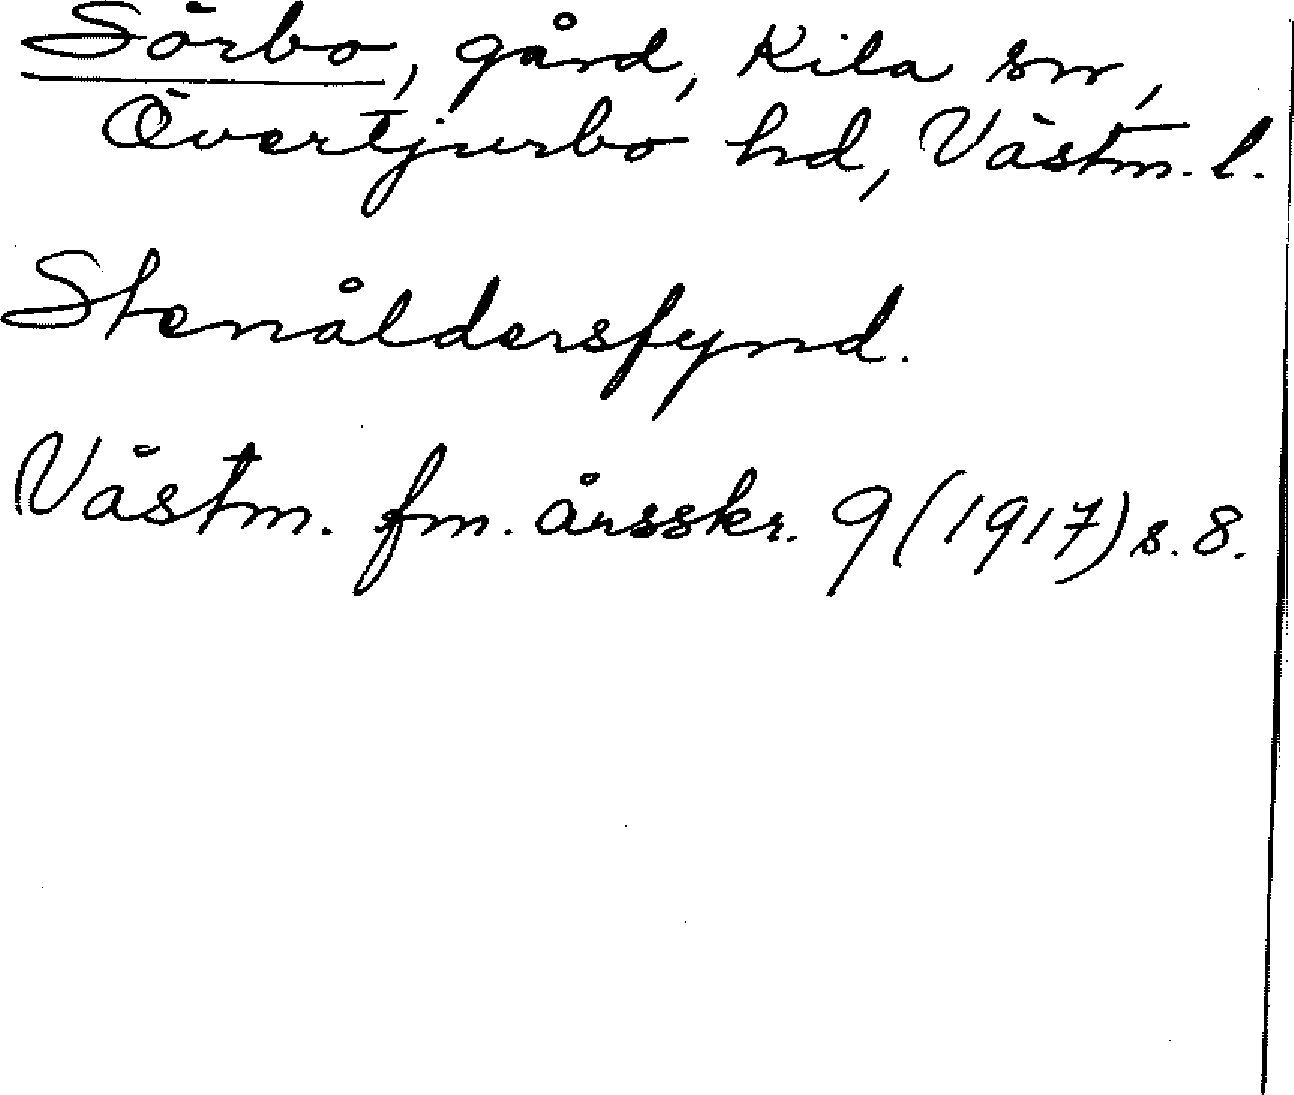 Sörbo, gård, Kila sn,
Övertjurbo hd, Västm. l.
Stenåldersfynd.
Västm. fm. årsskr. 9 (1917) s. 8.